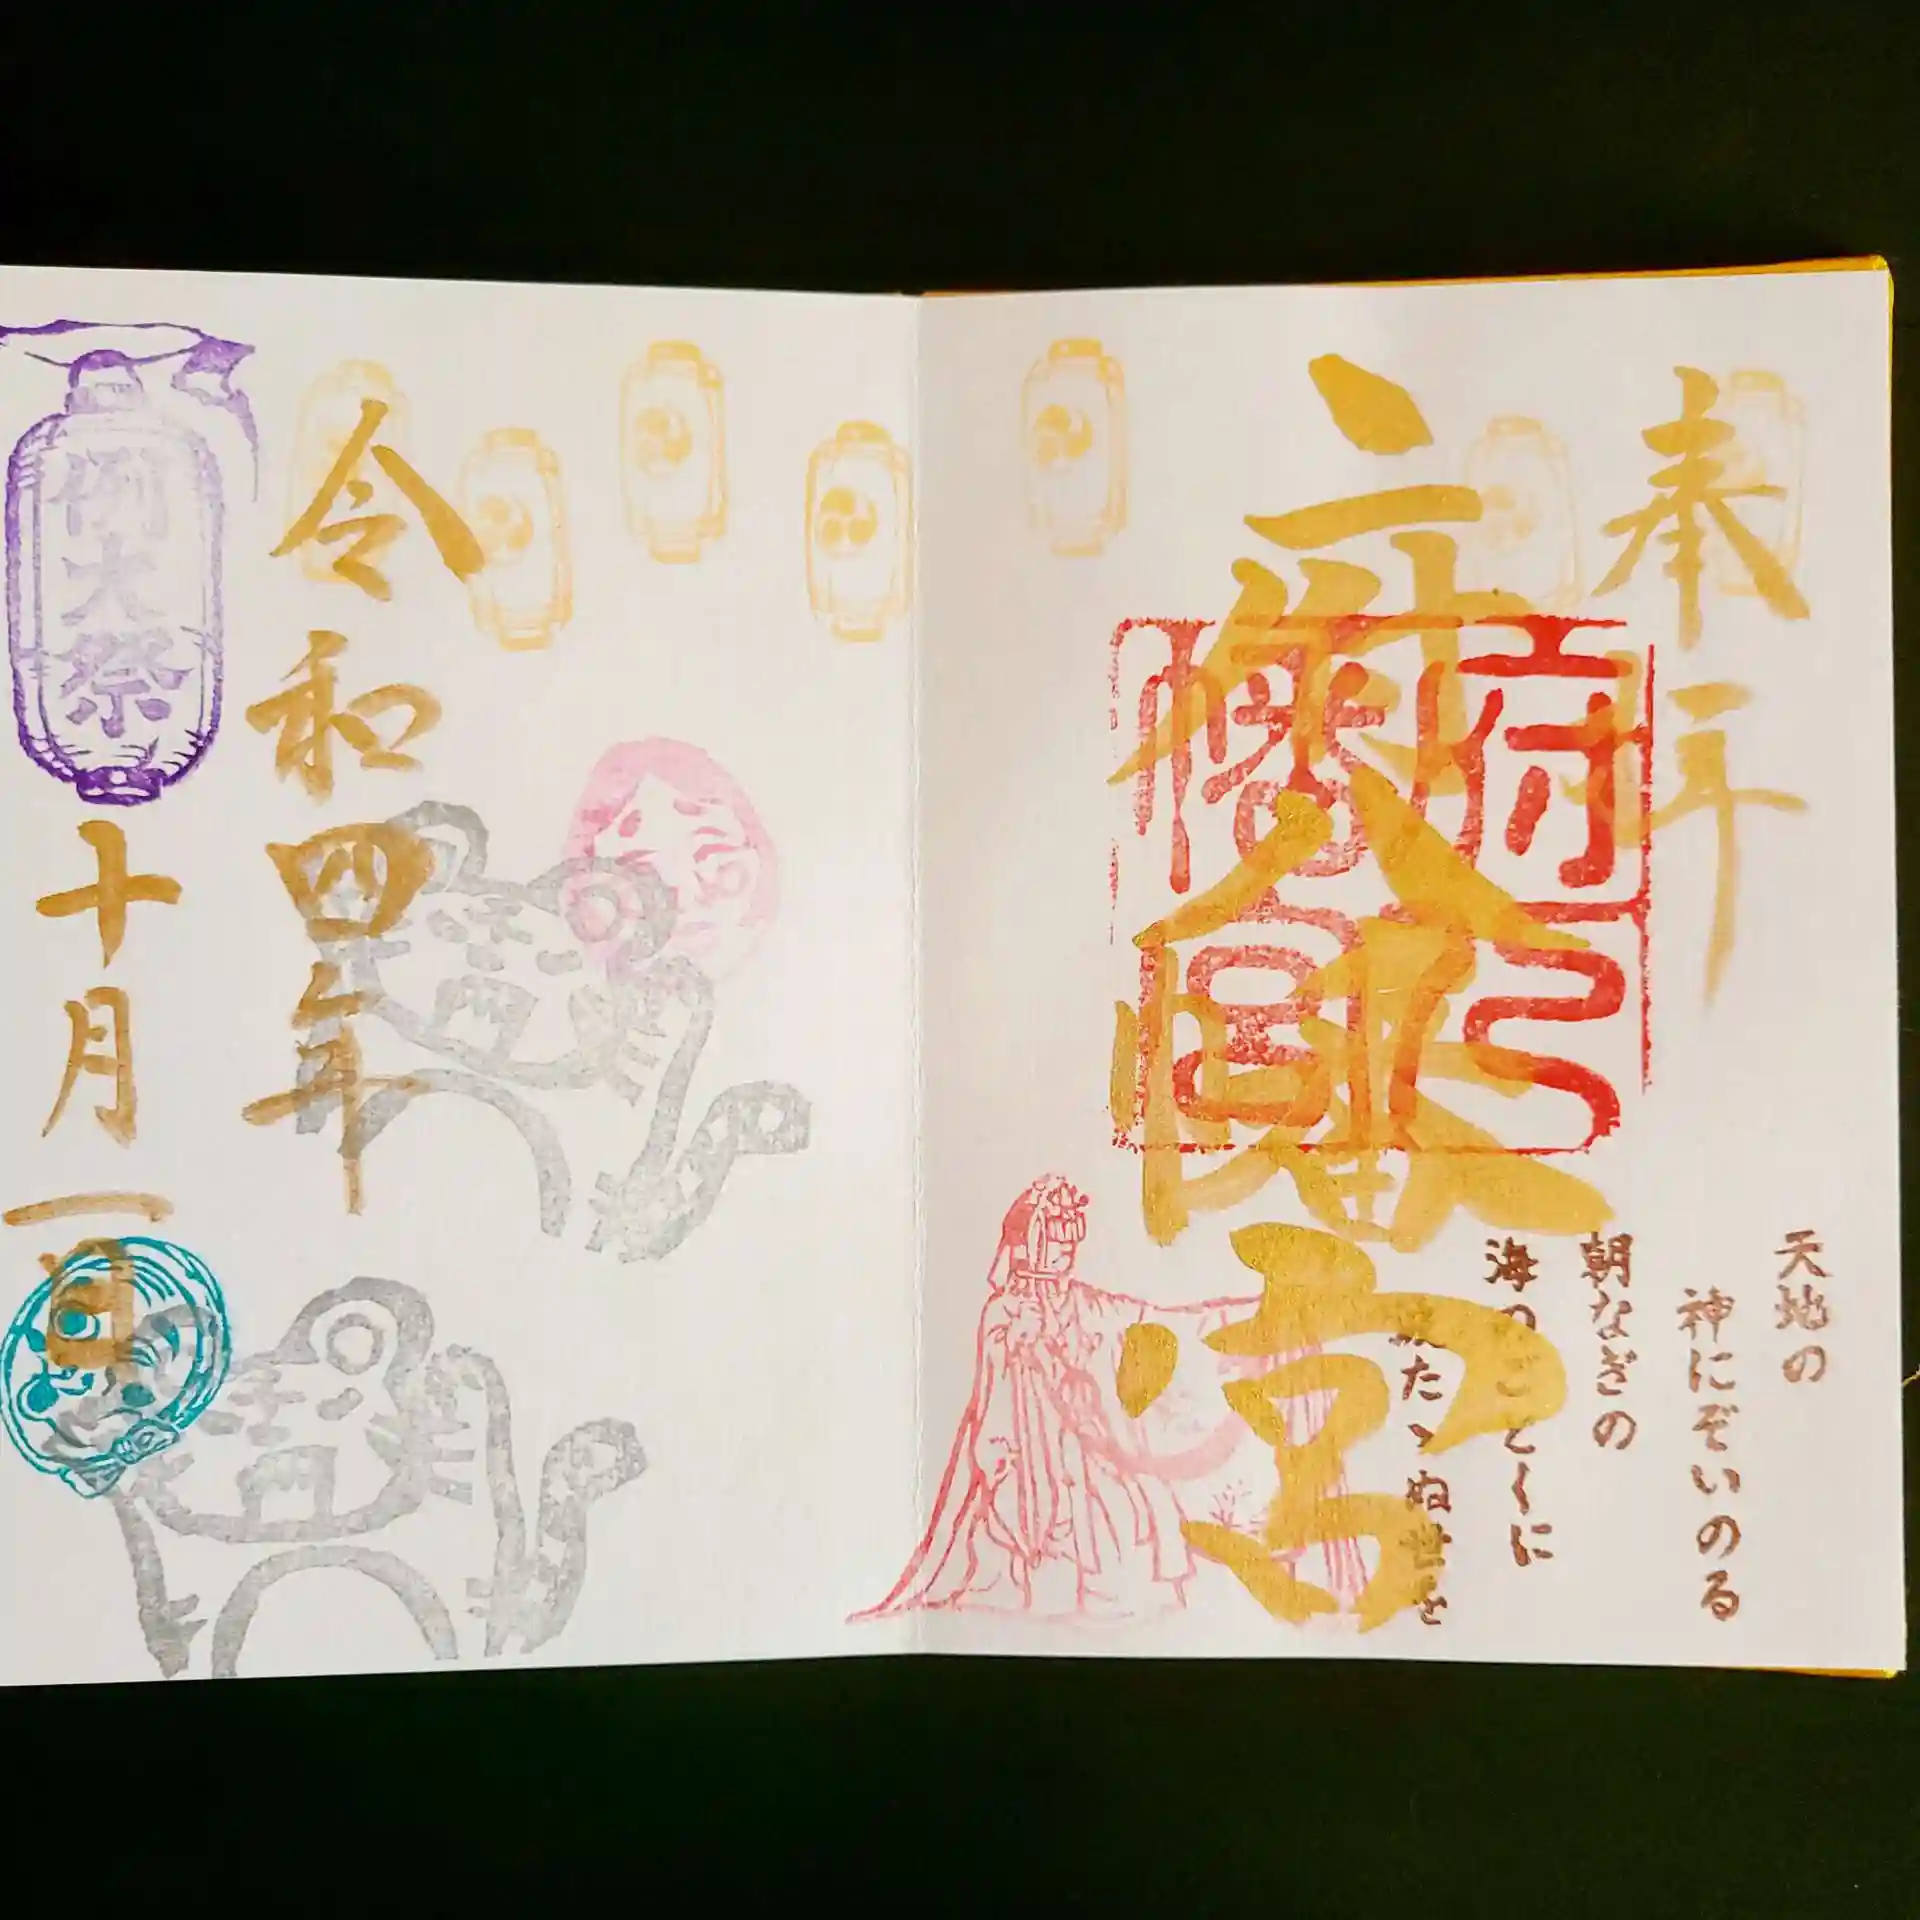 奉拝
天地の
神にぞいのる
朝なぎの
海のごとくに
波たゝぬ世を
府八幡宮
府八
幡宮
令和四年
例大祭
十月一日